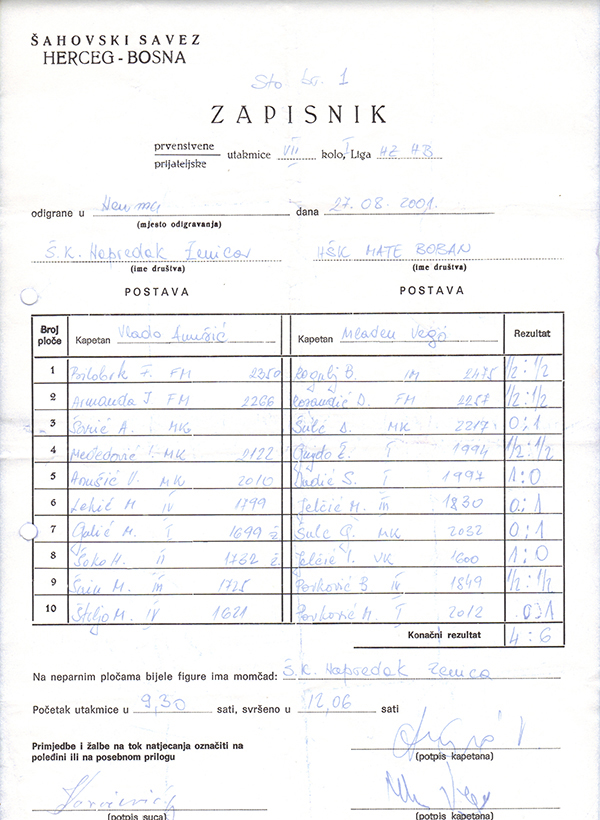 ŠAHOVSKI SAVEZ
HERCEG - BOSNA
Sto br. 1
ZAPISNIK
prvenstvene
prijateljske
utakmice VII kolo, I Liga HZ HB
odigrane u Neuma dana 27.08.2001.
(mjesto odigravanja)
Š.K. Napredak Zenica HŠK MATE BOBAN
(ime društva) (ime društva)
POSTAVA POSTAVA
Broj ploče Kapetan Vlado Anušić Kapetan Mladen Vego Rezultat
1 F. FM 2350 Rogulj B. IM 2475 1/2 : 1/2
2 Armanda J FM 2266 D. FM 2257 1/2 : 1/2
3 A. MK Šulc D. MK 2217 0 : 1
4 MK 2122 I 1994 1/2 : 1/2
5 Anušić V. MK 2010 Dadić S. I 1997 1 : 0
6 Lekić M IV 1799 Jelčić M. III 1830 0 : 1
7 Galić M. I 1699 ž. Šulc MK 2032 0 : 1
8 Šoko H. II 1732 ž. Jelčić I. VK 1600 1 : 0
9 M. III 1725 Pavković B. IV 1849 1/2 : 1/2
10 Štiljo M. IV 1621 Pavković M. I 2012 0:1
Konačni rezultat 4 : 6
Na neparnim pločama bijele figure ima momčad: Š.K. Napredak Zenica
Početak utakmice u 9,30 sati, svršeno u 12,06 sati
Primjedbe i žalbe na tok natjecanja označiti na
poledini ili na posebnom prilogu
(potpis kapetana)
(potpis suca) (potpis kapetana)